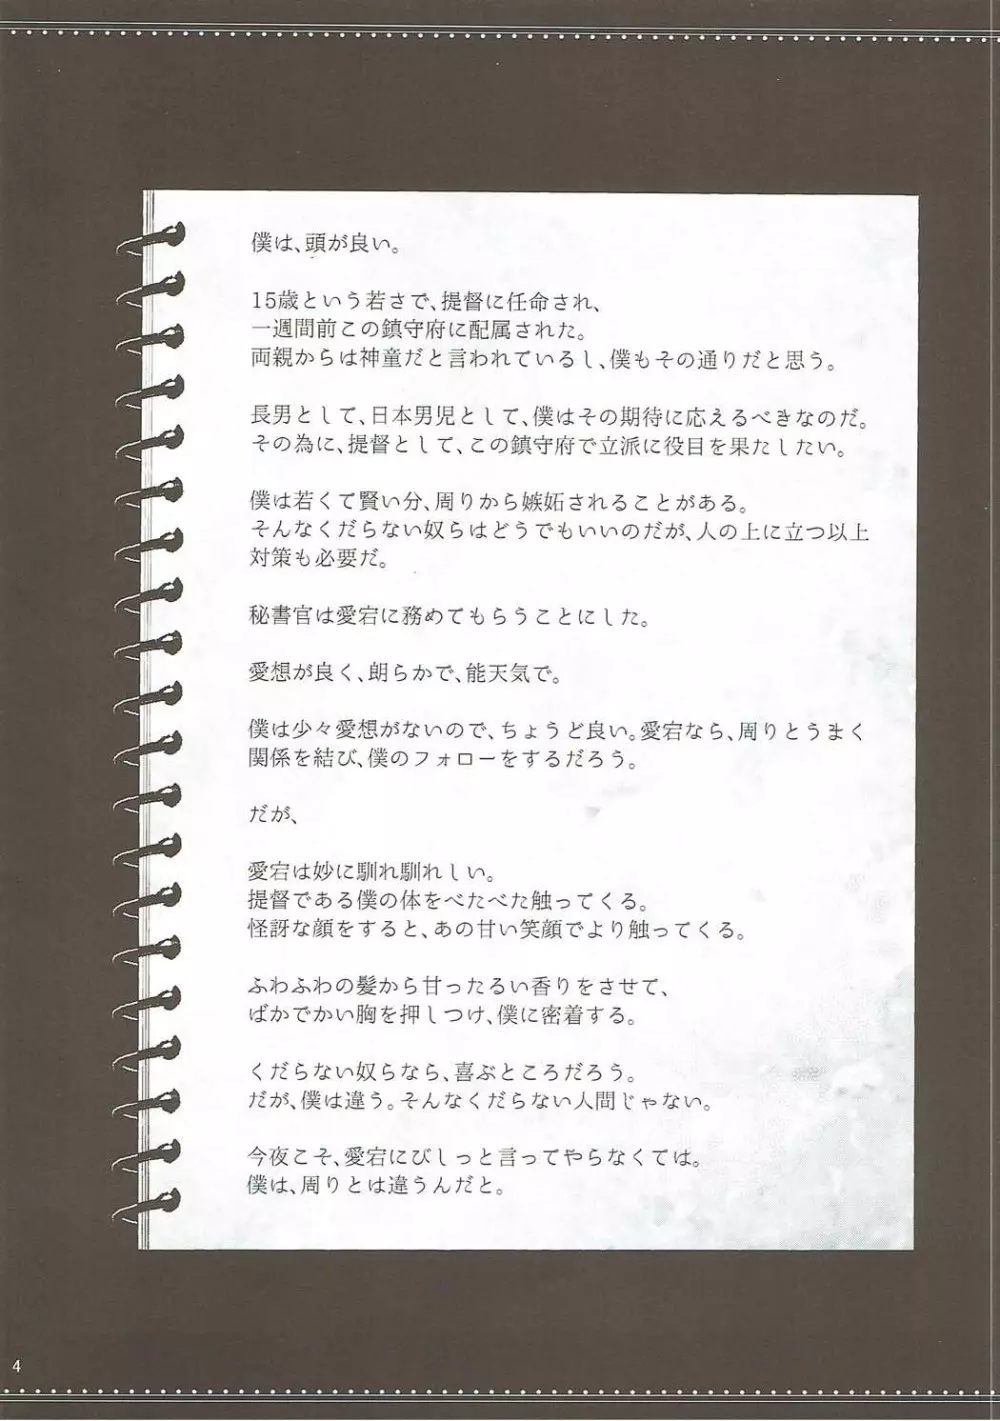 僕は、頭が良い。
15歳という若さで、提督に任命され、
一週間前この鎮守府に配属された。
両親からは神童だと言われているし、僕もその通りだと思う。
長男として、日本男児として、僕はその期待に応えるべきなのだ。
その為に、提督として、この鎮守府で立派に役目を果たしたい。
僕は若くて賢い分、周りから嫉妬されることがある。
そんなくだらない奴らはどうでもいいのだが、人の上に立つ以上
対策も必要だ。
秘書官は愛宕に務めてもらうことにした。
愛想が良く、朗らかで、能天気で。
僕は少々愛想がないので、ちょうど良い。愛宕なら、周りとうまく
関係を結び、僕のフォローをするだろう。
だが、
愛宕は妙に馴れ馴れしい。
提督である僕の体をべたべた触ってくる。
怪訝な顔をすると、あの甘い笑顔でより触ってくる。
ふわふわの髪から甘ったるい香りをさせて、
ばかでかい胸を押しつけ、僕に密着する。
くだらない奴らなら、喜ぶところだろう。
だが、僕は違う。そんなくだらない人間じゃない。
今夜こそ、愛宕にびしっと言ってやらなくては。
僕は、周りとは違うんだと。
4